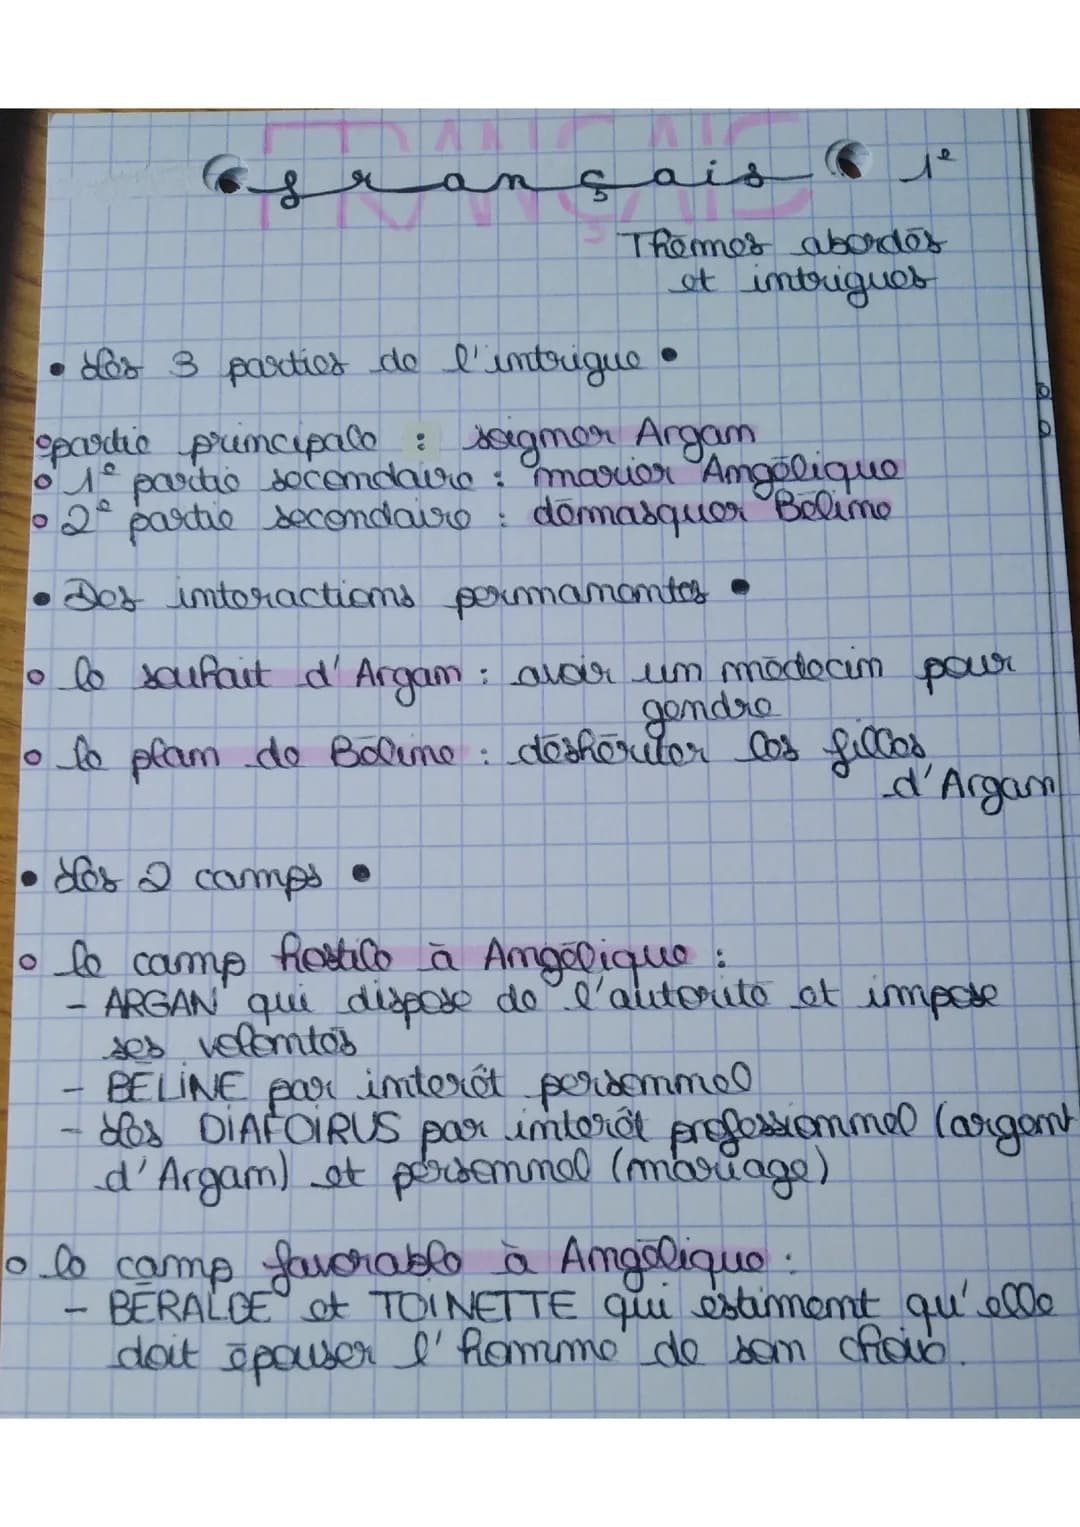 FRANÇAIS
français 1e
Thèmes abordés
et intrigues
• Les 3 parties de l'intrigue •
partie principale : soigner Argan
1e partie secondaire : marier Angélique
2e partie secondaire : démasquer Béline
• Des interactions permanentes •
le souhait d'Argan : avoir un médecin pour
gendre
le plan de Béline : déshériter les filles
d'Argan
• Les 2 camps •
le camp hostile à Angélique :
- ARGAN qui dispose de l'autorité et impose
ses volontés
- BÉLINE par intérêt personnel
- Les DIAFOIRUS par intérêt professionnel (argent
d'Argan) et personnel (mariage)
le camp favorable à Angélique :
- BÉRALDE et TOINETTE qui estiment qu'elle
doit épouser l'homme de son choix.